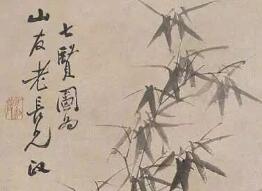 七賢圖为
山友老長兄政